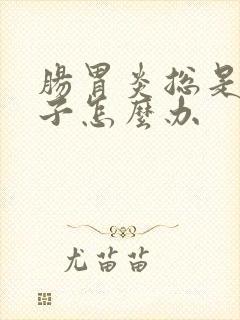 腸胃炎总是
子怎麼办
尤苗苗